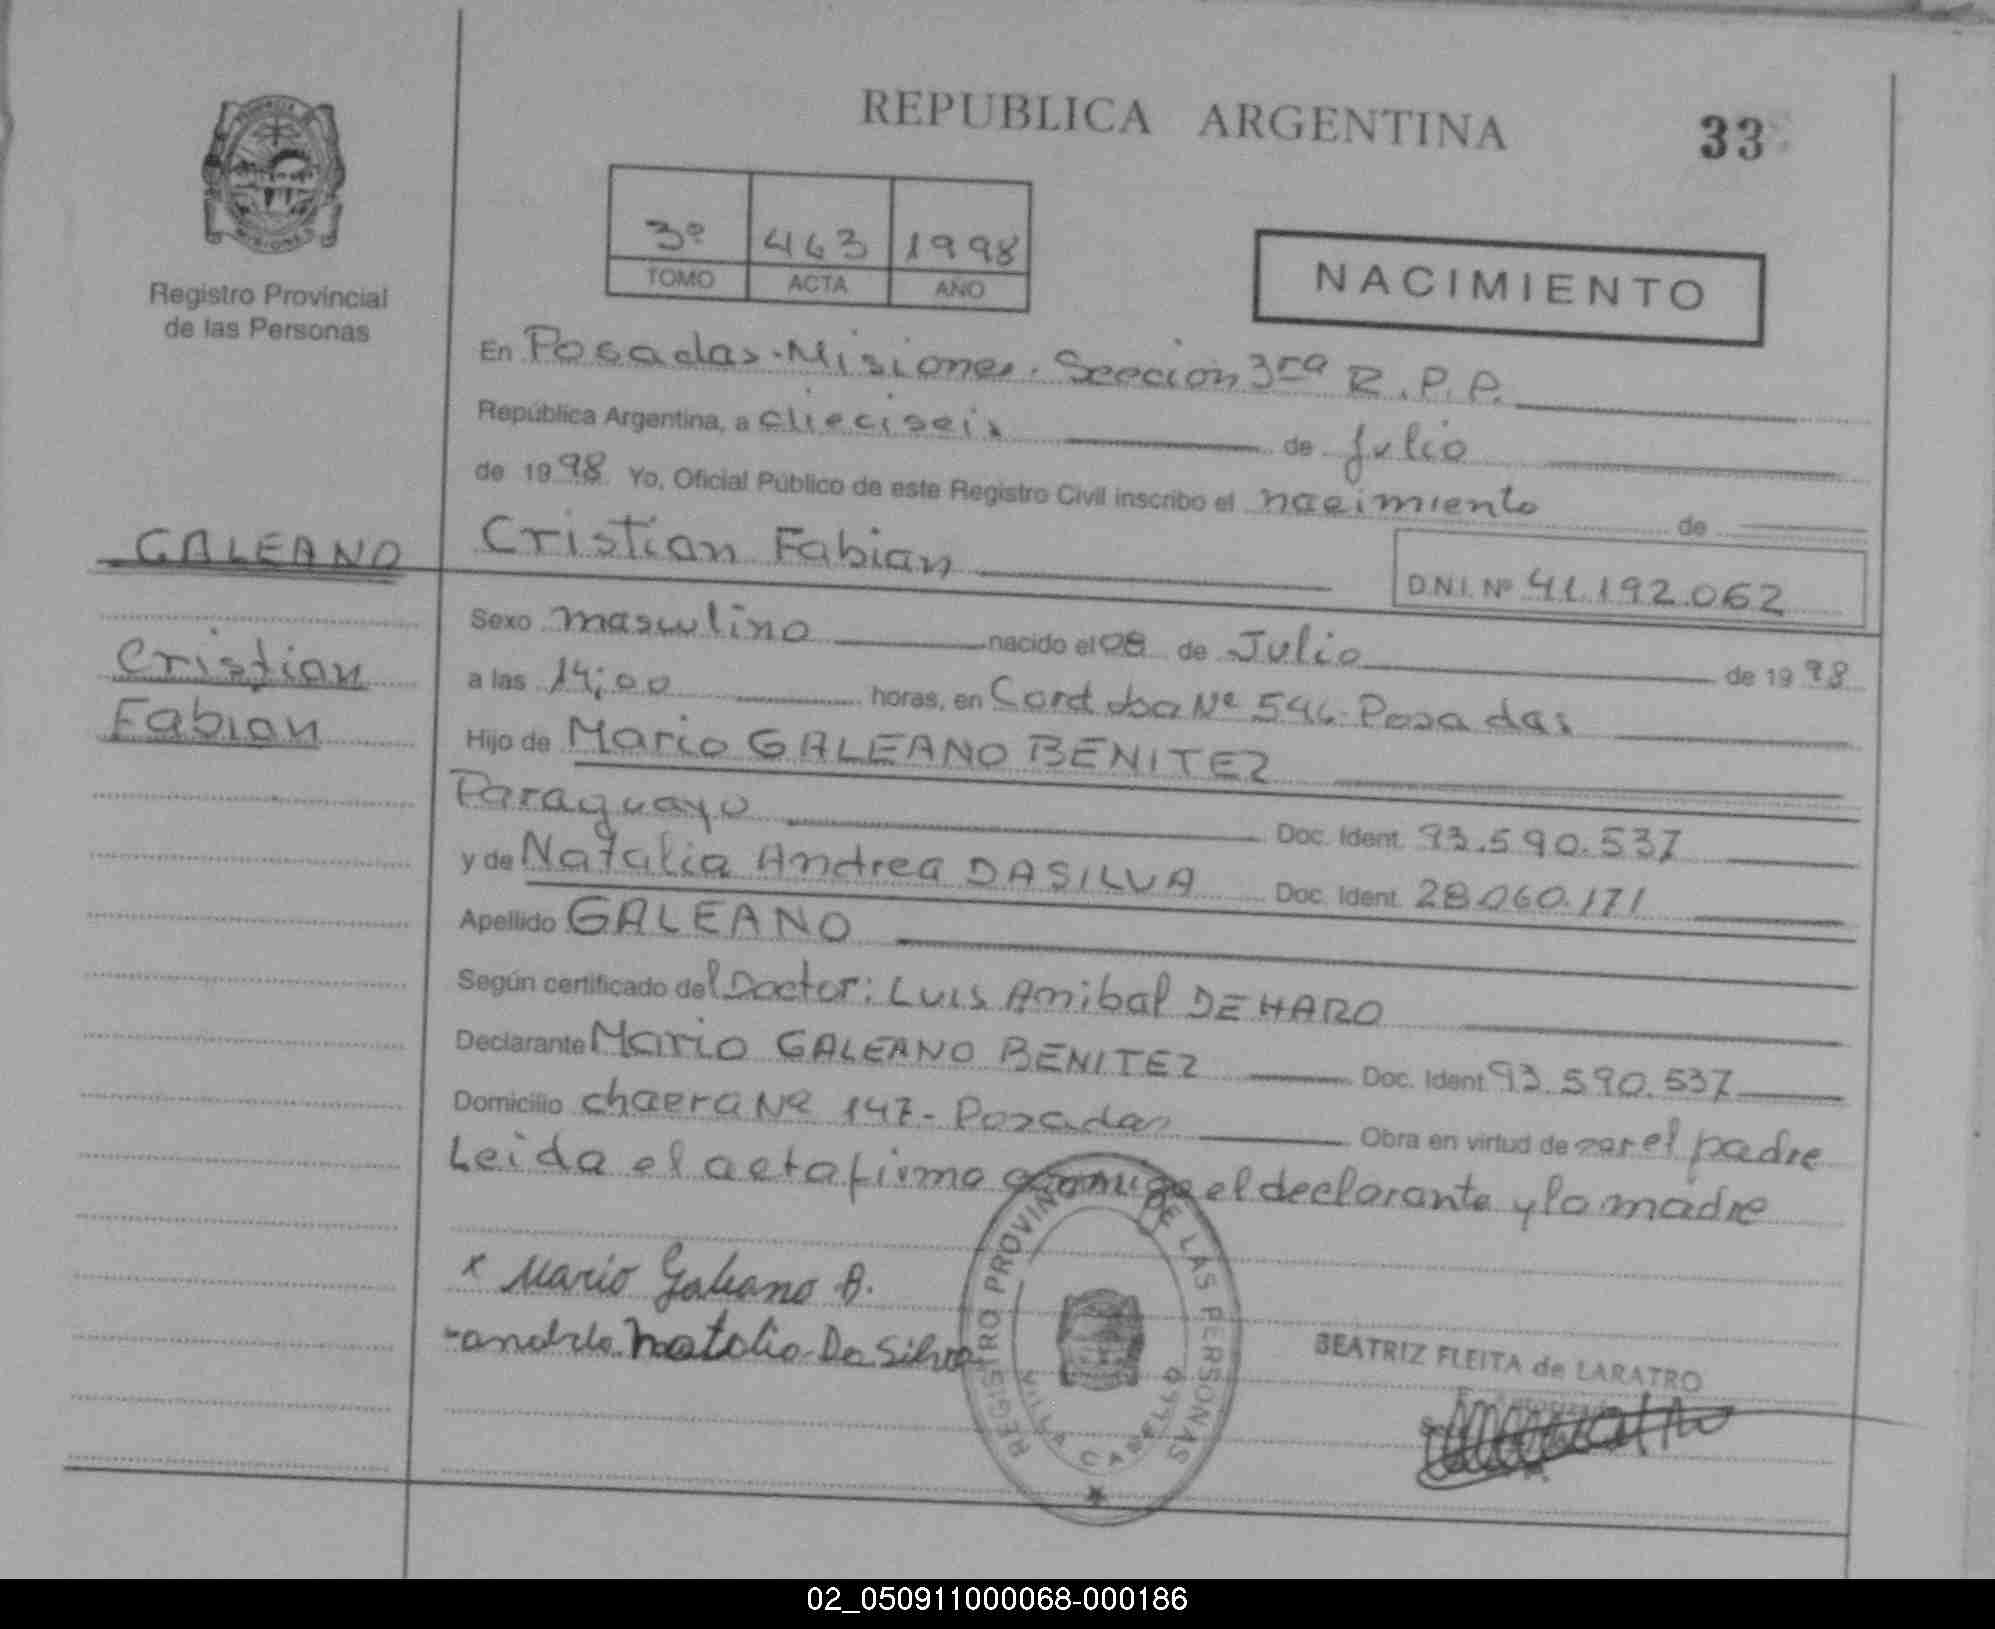 REPUBLICA ARGENTINA
33
PROVINCIA
MISIONES
Registro Provincial
de las Personas
3º 463 1998
TOMO ACTA AÑO
NACIMIENTO
En Posadas-Misiones. Sección 3ra R.P.P.
República Argentina, a dieciseis de Julio
de 1998 Yo, Oficial Público de este Registro Civil inscribo el nacimiento de
GALEANO
Cristian Fabian
D.N.I. Nº 41.192.062
Cristian
Fabian
Sexo masculino nacido el 08 de Julio de 1998
a las 14:00 horas, en Cordoba Nº Posadas
Hijo de Mario GALEANO BENITEZ
Paraguayo Doc. Ident. 93.590.537
y de Natalia Andrea DASILVA Doc. Ident. 28.060.171
Apellido GALEANO
Según certificado del Doctor: Luis Anibal DE HARO
Declarante Mario GALEANO BENITEZ Doc. Ident. 93.590.537
Domicilio chacra Nº 147- Posadas Obra en virtud de ser el padre
Leida el acta firma conmigo el declarante y la madre
x Mario Galeano B.
Natalia Da Silva
REGISTRO PROVINCIAL DE LAS PERSONAS
VILLA CABELLO
BEATRIZ FLEITA de LARATRO
02_050911000068-000186